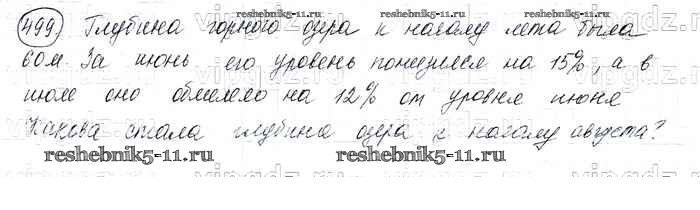 499. Глубина горного озера к началу лета была
60м. За июнь его уровень понизился на 15%, а в
июле оно обмелело на 12% от уровня июня
Какова стала глубина озера к началу августа?
reshebnik5-11.ru
reshebnik5-11.ru
reshebnik5-11.ru
reshebnik5-11.ru
vipgdz.ru